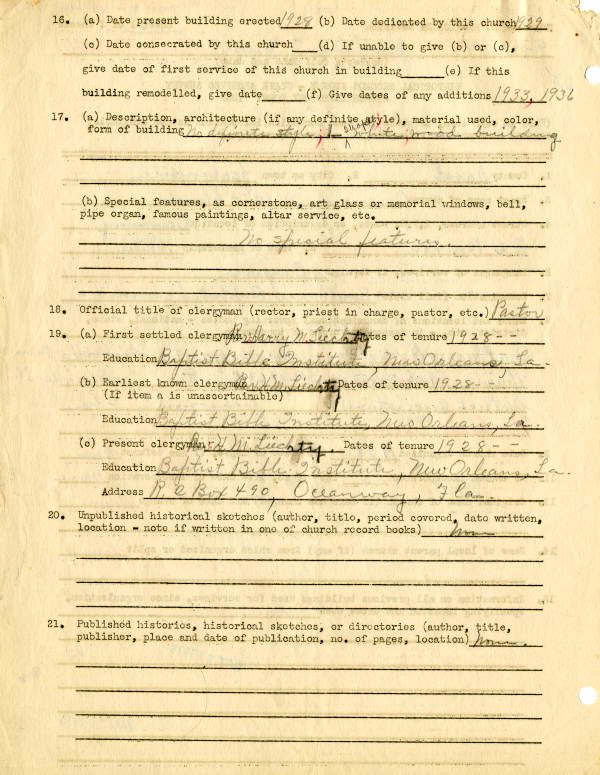 16. (a) Date present building erected 1928 (b) Date dedicated by this church 1929
(c) Date consecrated by this church (d) If unable to give (b) or (c),
give date of first service of this church in building (e) If this
building remodelled, give date (f) Give dates of any additions 1933, 1936
17. (a) Description, architecture (if any definite style), material used, color,
form of building No definite style; L shape white, wood building
(b) Special features, as cornerstone, art glass or memorial windows, bell,
pipe organ, famous paintings, altar service, etc.
No special features.
18. Official title of clergyman (rector, priest in charge, pastor, etc.) Pastor
19. (a) First settled clergyman Rev Harry M. Liechty Dates of tenure 1928 - -
Education Baptist Bible Institute, New Orleans, La.
(b) Earliest known clergyman Rev H M. Liechty Dates of tenure 1928 - -
(If item a is unascertainable)
Education Baptist Bible Institute, New Orleans, La.
(c) Present clergyman Rev H M. Liechty. Dates of tenure 1928 - -
Education Baptist Bible Institute, New Orleans, La.
Address R. 2 Box 490, Oceanway, Fla.
20. Unpublished historical sketches (author, title, period covered, date written,
location - note if written in one of church record books) None
21. Published histories, historical sketches, or directories (author, title,
publisher, place and date of publication, no. of pages, location) None.